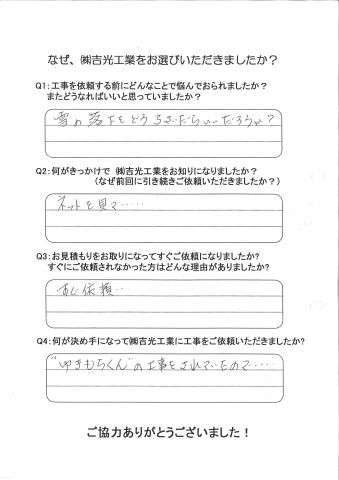 なぜ、㈱吉光工業をお選びいただきましたか？
Q1：工事を依頼する前にどんなことで悩んでおられましたか？
またどうなればいいと思っていましたか？
雪の落下をどうさばいたらいいだろうか？
Q2：何がきっかけで ㈱吉光工業をお知りになりましたか？
（なぜ前回に引き続きご依頼いただきましたか？）
ネットを見て・・・・・
Q3：お見積もりをお取りになってすぐご依頼になりましたか?
すぐにご依頼されなかった方はどんな理由がありましたか?
すぐ依頼・・・
Q4：何が決め手になって㈱吉光工業に工事をご依頼いただきましたか?
"ゆきもちくん"の工事をされていたので・・・・
ご協力ありがとうございました！